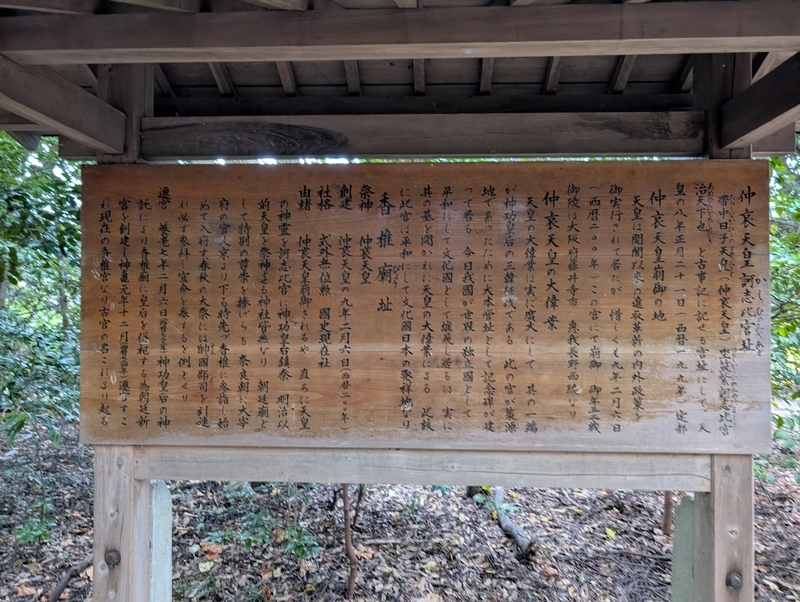 仲哀天皇 訶志比宮址
かしひのみやあと
帯中日子天皇(仲哀天皇)坐
治天下也 と古事記に記せる宮址にして 天
皇の八年正月二十一日(西暦一九九年)定都
仲哀天皇崩御の地
天皇は開闢以来の進取革新の内外政策を
御実行されて居たが 惜しくも九年二月六日
(西暦二〇〇年)この宮にて崩御 御年五二歳
御陵は大阪府藤井寺市 恵我長野西陵なり
仲哀天皇の大偉業
天皇の大偉業は実に広大にして 其の一端
が神功皇后の三韓征伐である 此の宮が策源
地であったために大本営址として記念碑が建
って居る 今日我國が世界の独立国として
平和にして文化國として雄飛し居るは 実に
其の基を開かれた天皇の大偉業による 此故
に此宮は平和にして文化國日本の発祥地なり
香椎廟址
祭神 仲哀天皇
創建 仲哀天皇の九年二月六日西暦二〇〇年
社格 式外無社格 國史現在社
由緒 仲哀天皇崩御されるや 直ちに天皇
の神霊を訶志比宮に神功皇后鎮祭 明治以
前天皇を祭神せる神社皆無なり 朝廷廟と
して特別の尊崇を捧げらる 奈良朝に大宰
府の官人京より下る時先づ香椎に参詣し始
めて入府す春秋の大祭には帥國郡司を引連
れ必ず参拝し宣命を奏するを例とせり
遷宮 養老七年二月六日 神功皇后の神
託により香椎廟に皇后を
宮を創建し神亀元年十二月 遷宮すこ
れ現在の香椎宮なり古宮の名これより起る